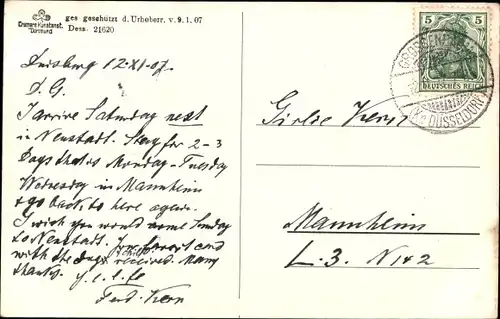 Cramers Kunstanst.
Dortmund
ges geschützt d. Urheberr. v. 9.1.07
Dess. 21620
Duisburg 12.XI.07.
D. G.
I arrive Saturday next
in Neustadt. Stay for 2-3
Days thats Monday - Tuesday
Wednesday in Mannheim
& go back to here again.
I wish you would come Sunday
to Neustadt. Your card
with the received. Many
thanks.
Ferd. Kern
5 5
DEUTSCHES REICH
DÜSSELDORF
Kern
Mannheim
L. 3. N 1 & 2